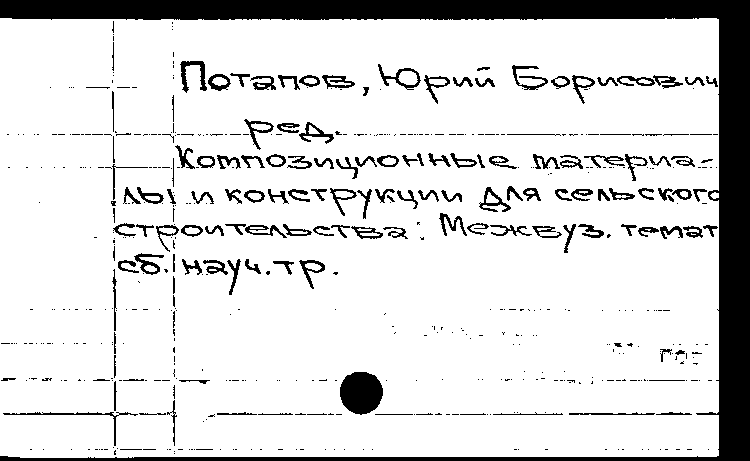 Потапов, Юрий Борисович
ред.
Композиционные материа-
лы и конструкции для сельского
строительства: Межвуз. темат
сб. науч. тр.